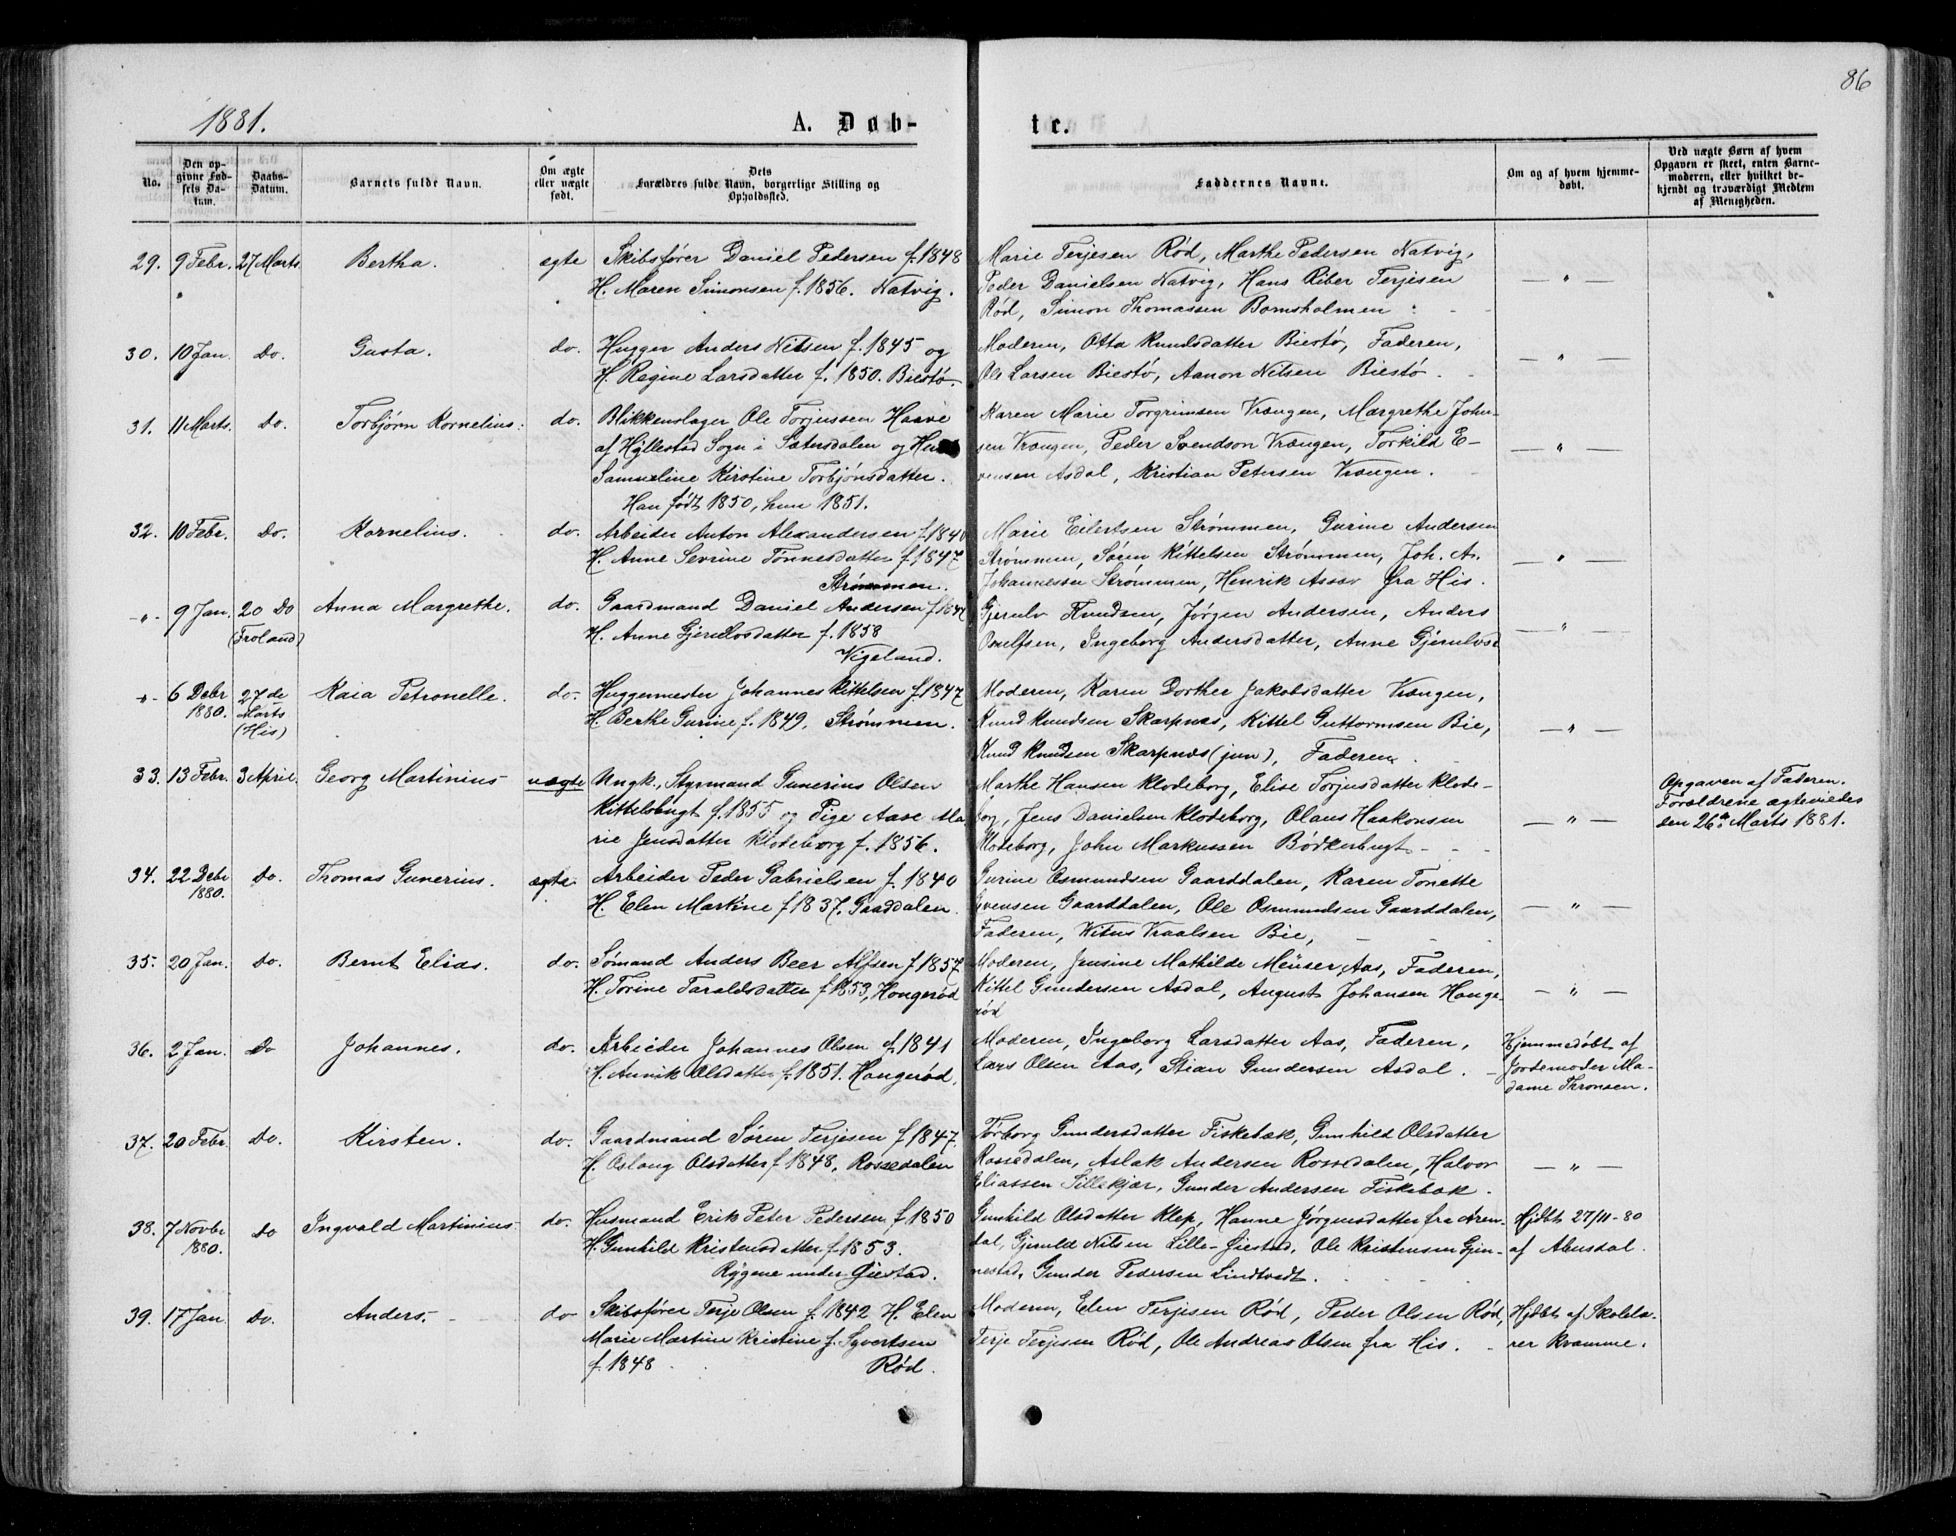 1881.
A. Døb-
te.
86
No.
Den op-
givne Fød-
sels Da-
tum.
Daabs-
Datum.
Barnets fulde Navn.
Om ægte
eller uægte
født.
Dets
Forældres fulde Navn, borgerlige Stilling og
Opholdssted.
Faddernes Navne.
Om og af hvem hjemme-
døbt.
Ved uægte Børn af hvem
Opgaven er skeet, enten Barne-
moderen, eller hvilket be-
kjendt og troværdigt Medlem
af Menigheden.
29. 9 Febr. 27 Marts. Bertha. ægte Skibsfører Daniel Pedersen f. 1848
H. Maren Simonsen f. 1856. Natvig.
Marie Terjesen Rød, Marthe Pedersen Natvig,
Peder Danielsen Natvig, Hans Riber Terjesen
Rød, Simon Thomassen Bomsholmen
— " —
30. 10 Jan. Do. Gusta. do. Hugger Anders Nilsen f. 1845 og
H. Regine Larsdatter f. 1850. Biestø.
Moderen, Otta Knudsdatter Biestø, Faderen,
Ole Larsen Biestø, Aanon Nilsen Biestø.
— " —
31. 11 Marts. Do. Torbjørn Kornelius. do. Blikkenslager Ole Torjussen Haave
af Hyllestad Sogn i Sætersdalen og
Samueline Kirstine Torbjønsdatter.
Han født 1850, hun 1851.
Karen Marie Torgrimsen Vrængen, Margrethe John-
sen Vrængen, Peder Svendson Vrængen, Torkild E-
vensen Asdal, Kristian Petersen Vrængen.
— " —
32. 10 Febr. Do. Kornelius. do. Arbeider Anton Alexandersen f. 1840
H. Anne Severine Tønnesdatter f. 1847
Strømmen.
Marie Eilertsen Strømmen, Gurine Andersen
Strømmen, Søren Kittelsen Strømmen, Joh. A.
Johannessen Strømmen, Henrik Assev fra His.
— " —
-"- 9 Jan. 20 Do (Froland) Anna Margrethe. do. Gaardmand Daniel Andersen
H. Anne Gjerulvsdatter f. 1858
Vigeland.
Gjerulv Knudsen, Jørgen Andersen, Anders
Osulfsen, Ingeborg Andersdatter, Anne Gjerulvsd
— " —
-"- 6 Debr 1880. 27de Marts (His) Kaia Petronelle. do. Huggermester Johannes Kittelsen f. 1847
H. Berthe Gurine f. 1849. Strømmen.
Moderen, Karen Dorther Jakobsdatter Vrængen,
Knud Knudsen Skarpnæs, Kittel Guttormsen Bie,
Knud Knudsen Skarpnæs (jun), Faderen.
— " —
33. 13 Febr. 3 April. Georg Martinius uægte Ungk., Styrmand Gunerius Olsen
Kittelsbugt f. 1855 og Pige Aase Ma-
rie Jensdatter Klodeborg f. 1856.
Marthe Hansen Klodeborg, Elise Torjusdatter Klode-
borg, Jens Danielsen Klodeborg, Olaus Haakonsen
Klodeborg, John Markussen Bødkerbugt
— " —
Opgaven af Faderen.
Forældrene ægteviedes
den 26de Marts 1881.
34. 22 Debr 1880. Do. Thomas Gunerius. ægte Arbeider Peder Gabrielsen f. 1840
H. Elen Martine f. 1837. Gaaddalen.
Gurine Osmundsen Gaarddalen, Karen Tonette
Evensen Gaarddalen, Ole Osmundsen Gaarddalen,
Faderen, Vitus Vraalsen Bie,
— " —
35. 20 Jan. Do. Bernt Elias. do. Sømand Anders Beer Alfsen f. 1857.
H. Torine Taraldsdatter f. 1853, Hougerød
Moderen, Jensine Mathilde Meuser Aas, Faderen,
Kittel Gundersen Asdal, August Johansen Houge-
rød
— " —
36. 2 Jan. Do Johannes. do. Arbeider Johannes Olsen f. 1841
H. Annik Olsdatter f. 1851. Hougerød.
Moderen, Ingeborg Larsdatter Aas, Faderen,
Lars Olsen Aas, Stian Gundersen Asdal.
Hjemmedøbt af
Jordemoder Ma-
dame Thronsen.
37. 20 Febr. Do. Kirsten. do. Gaardmand Søren Terjesen f. 1847.
H. Aslaug Olsdatter f. 1848, Rossedalen
Torborg Gundersdatter Fiskebæk, Gunhild Olsdatter
Rossedalen, Aslak Andersen Rossedalen, Halvor
Eliassen Sillekjær, Gunder Andersen Fiskebæk.
— " —
38. 7 Novbr 1880. Do Ingvald Martinius do. Husmand Erik Peter Pedersen f. 1850
H. Gunhild Kristensdatter f. 1853.
Rygene under Øiestad.
Gunhild Olsdatter Klep, Hanne Jørgensdatter fra Aren-
dal, Gjeruld Nilsen Lille-Øiestad, Ole Kristensen Gjen-
nestad, Gunder Pedersen Lindtvedt.
Hjdbt 27/11-80
af Abusdal.
39. 17 Jan Do. Anders. do Skibsfører Terje Olsen f. 1842 H. Elen
Marie Martine Kristine f. Syvertsen
f. 1848 Rød.
Moderen, Elen Terjesen Rød, Peder Olsen Rød,
Terje Terjesen Rød, Ole Andreas Olsen fra His.
Hjdbt af Skolelæ-
rer Kvamme.